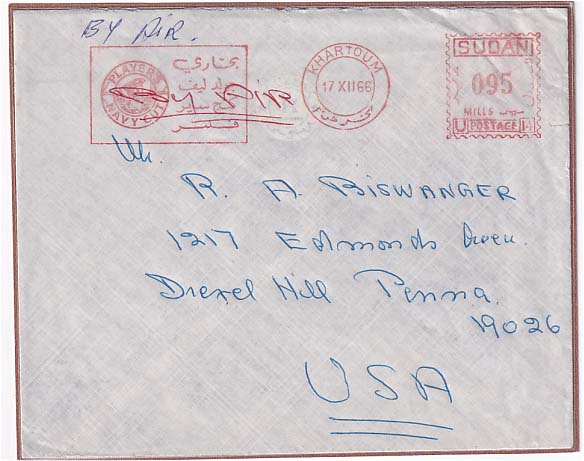 BY AIR.
PLAYER'S
NAVY CUT
بحاري
فلتر
By Air
KHARTOUM
17 XII 66
SUDAN
095
MILLS
U POSTAGE
R. A. BISWANGER
1217 Edmonds
Drexel Hill Penna.
19026
USA